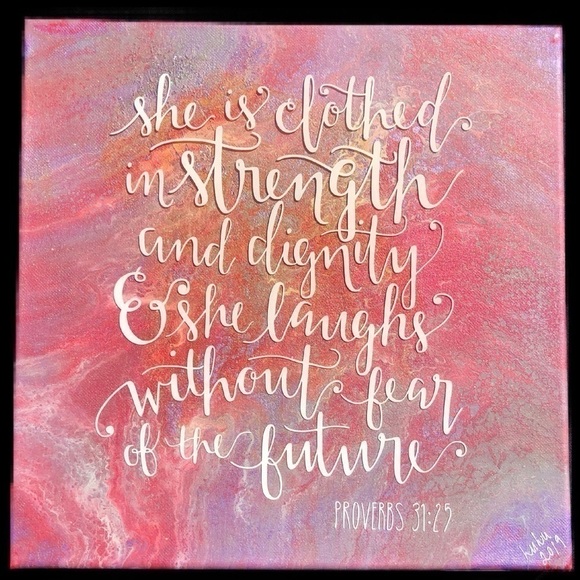 she is clothed
in strength
and dignity
& she laughs
without fear
of the future
PROVERBS 31:25
2019